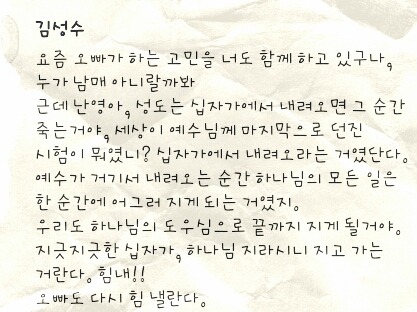 김성수
요즘 오빠가 하는 고민을 너도 함께 하고 있구나,
누가 남매 아니랄까봐
근데 난영아, 성도는 십자가에서 내려오면 그 순간
죽는거야, 세상이 예수님께 마지막으로 던진
시험이 뭐였니? 십자가에서 내려오라는 거였단다.
예수가 거기서 내려오는 순간 하나님의 모든 일은
한 순간에 어그러 지게 되는 거였지.
우리도 하나님의 도우심으로 끝까지 지게 될거야.
지긋지긋한 십자가, 하나님 지라시니 지고 가는
거란다. 힘내!!
오빠도 다시 힘 낼란다.